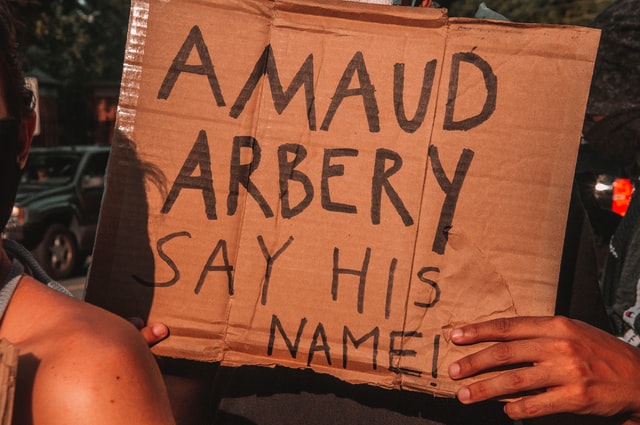 AMAUD
ARBERY
SAY HIS
NAME!